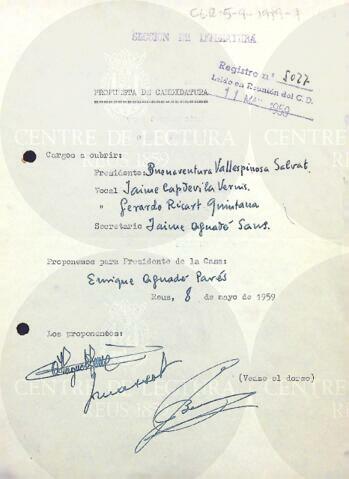 CLR-5-9-1959-7
SECCION DE LITERATURA
Registro nº 5027
Leido en Reunión del C. D.
11 MAY 1959
PROPUESTA DE CANDIDATURA
Cargos a cubrir:
Presidente: Buenaventura Vallespinosa Salvat.
Vocal Jaime Capdevila Vernis.
" Gerardo Ricart Quintana
Secretario Jaime Aguadé Sans.
Proponemos para Presidente de la Casa:
Enrique Aguadé Parés
Reus, 8 de mayo de 1959
Los proponentes:
(Vease el dorso)
CENTRE DE LECTURA
REUS 1859